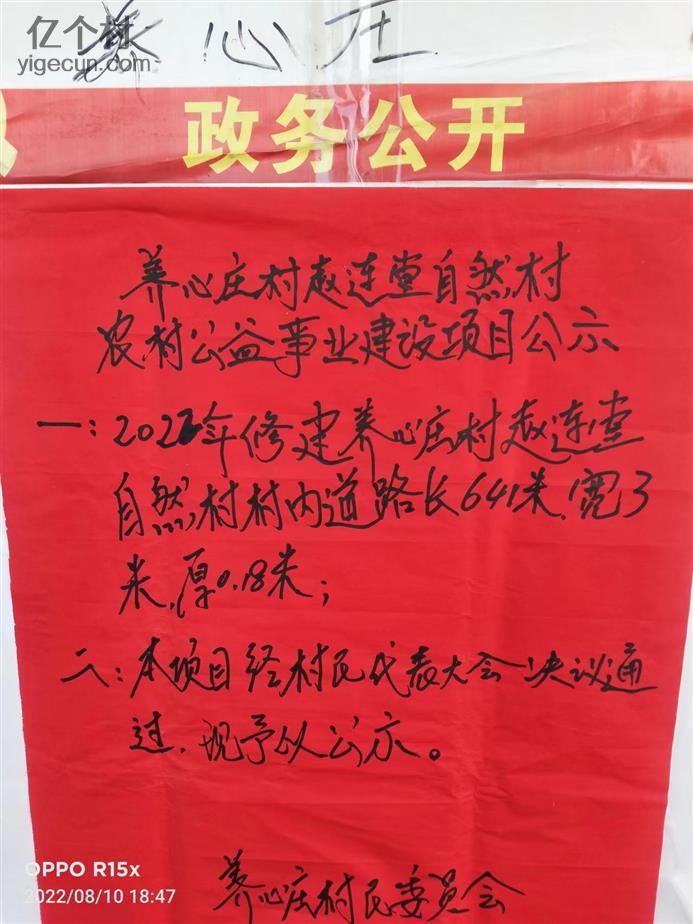 亿个村
yigecun.com
养心庄
政务公开
养心庄村赵连堂自然村
农村公益事业建设项目公示
一:2022年修建养心庄村赵连堂
自然村村内道路长641米,宽3
米,厚0.18米;
二:本项目经村民代表大会决议通
过,现予以公示。
养心庄村民委员会
OPPO R15x
2022/08/10 18:47